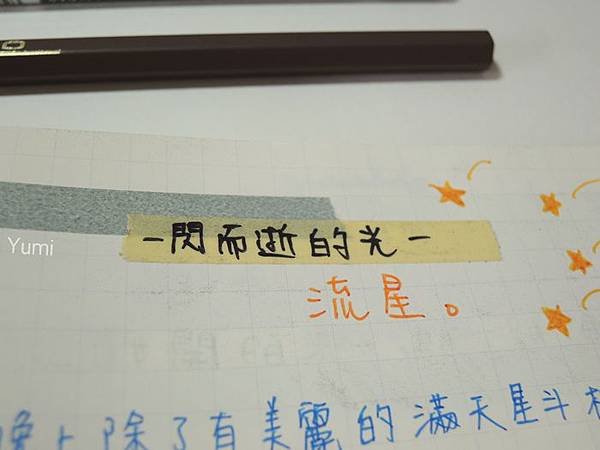 一閃而逝的光一
Yumi
流星。
晚上除了有美麗的滿天星斗